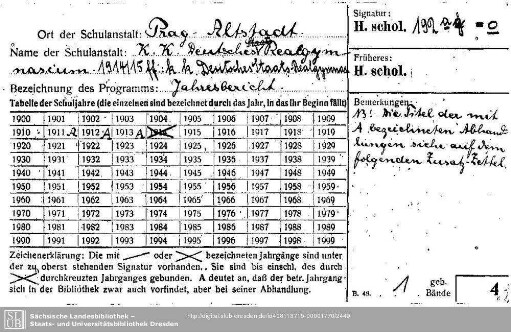 Ort der Schulanstalt: Prag Altstadt
Name der Schulanstalt: K. K. Deutsches Realgym
nasium. 1914/15 ff: k. k. Deutsches Staats-Realgymnas
Bezeichnung des Programms: Jahresbericht.
Tabelle der Schuljahre (die einzelnen sind bezeichnet durch das Jahr, in das ihr Beginn fällt)
1900 1901 1902 1903 1904 1905 1906 1907 1908 1909
1910 1911 A 1912 A 1913 A 1914 1915 1916 1917 1918 1919
1920 1921 1922 1923 1924 1925 1926 1927 1928 1929
1930 1931 1932 1933 1934 1935 1936 1937 1938 1939
1940 1941 1942 1943 1944 1945 1946 1947 1948 1949
1950 1951 1952 1953 1954 1955 1956 1957 1958 1959
1960 1961 1962 1963 1964 1965 1966 1967 1968 1969
1970 1971 1972 1973 1974 1975 1976 1977 1978 1979
1980 1981 1982 1983 1984 1985 1986 1987 1988 1989
1990 1991 1992 1993 1994 1995 1996 1997 1998 1999
Zeichenerklärung: Die mit oder bezeichneten Jahrgänge sind unter
der zu oberst stehenden Signatur vorhanden. Sie sind bis einschl. des durch
durchkreuzten Jahrganges gebunden. A deutet an, daß der betr. Jahrgang
sich in der Bibliothek zwar auch vorfindet, aber bei seiner Abhandlung.
Signatur:
H. schol. 192
Früheres:
H. schol.
Bemerkungen:
NB! Die Titel der mit
A bezeichneten Abhand
lungen siehe auf dem
folgenden Zusatz-Zettel.
B. 48. 1 geb. Bände 4
Sächsische Landesbibliothek –
Staats- und Universitätsbibliothek Dresden